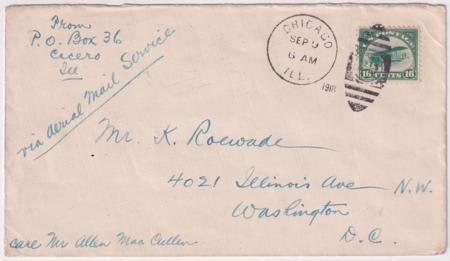 From
P.O. Box 36
Cicero
Ill
via Aerial Mail Service
CHICAGO
SEP 9
6 AM
ILL.
1918
POSTAGE
16 CENTS 16
Mr. K. Roewade
4021 Illinois Ave N.W.
Washington
D.C.
care Mr Allen Mac Cullen